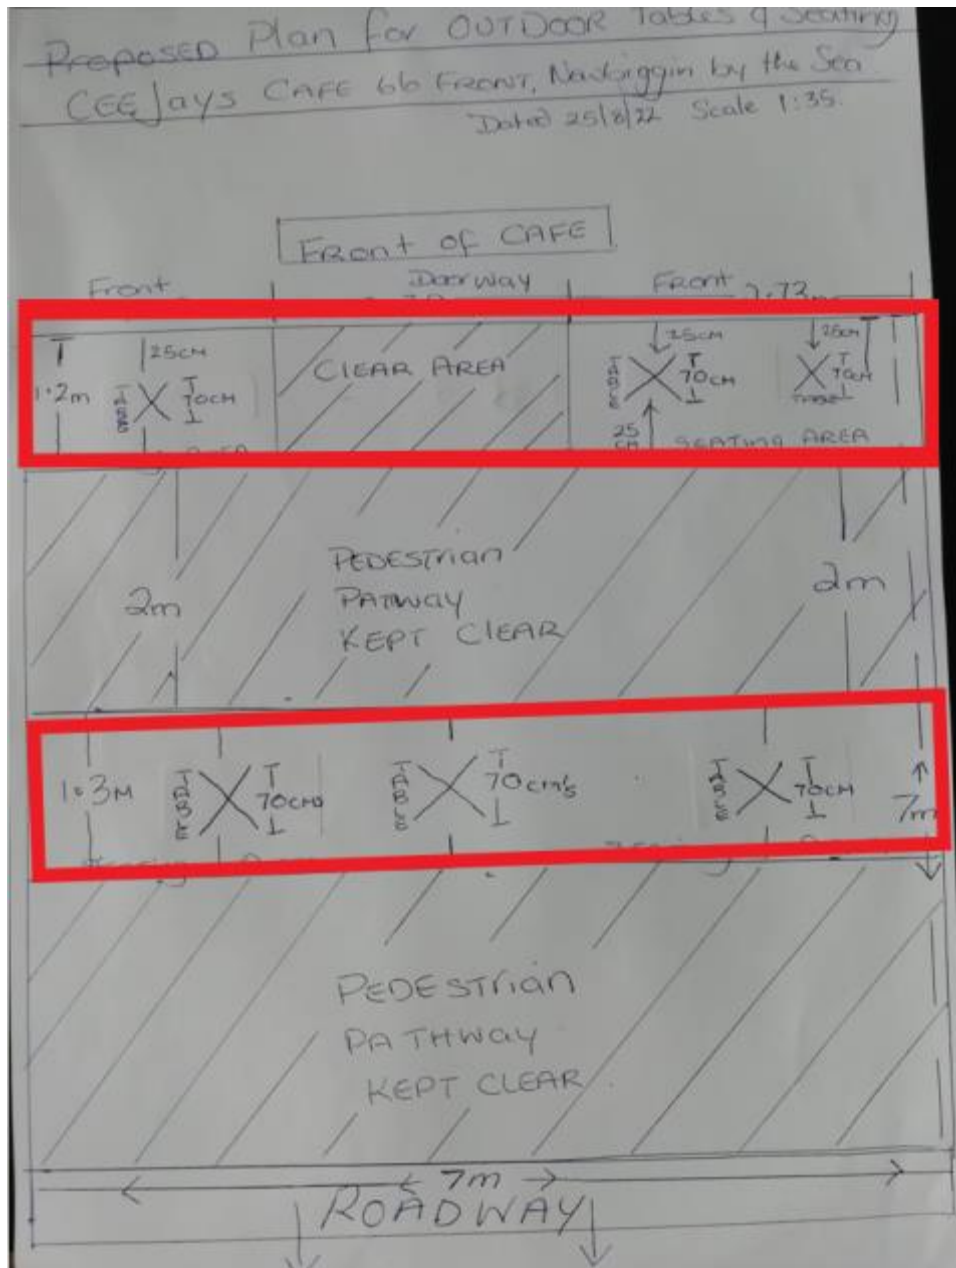 PROPOSED Plan for OUTDOOR Tables & Seating
CEEJays CAFE 66 FRONT, Newbiggin by the Sea
Dated 25/8/22 Scale 1:35
Front of CAFE
Front Doorway Front
CLEAR AREA
25CM 25CM 25CM
1.2m TABLE T 70CM TABLE T 70CM T 70CM
25 CM SEATING AREA
PEDESTRIAN
PATHWAY
KEPT CLEAR
2m 2m
1.3M TABLE T 70CMS TABLE T 70cm's TABLE T 70CM 7m
PEDESTRIAN
PATHWAY
KEPT CLEAR
7m
ROADWAY